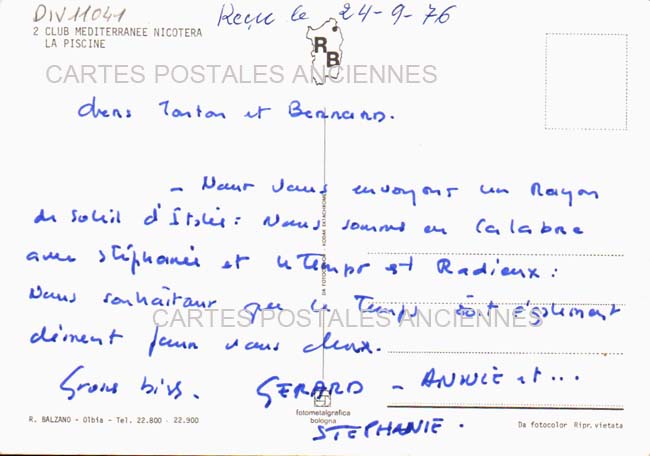 DIV11041
Reçu le 24-9-76
2 CLUB MEDITERRANEE NICOTERA
LA PISCINE
RB
CARTES POSTALES ANCIENNES
chers Tonton et BERNARD.
- Nous vous envoyons un Rayon
de soleil d'Italie : Nous sommes en Calabre
avec Stéphanie et le Temps est Radieux :
Nous souhaitons que le Temps soit également
clément pour vous deux.
CARTES POSTALES ANCIENNES
Gros bises. GERARD - ANNIE et ...
STEPHANIE.
DA FOTOCOLOR KODAK EKTACHROME
R. BALZANO - Olbia - Tel. 22.800 - 22.900
fotometalgrafica
bologna
Da fotocolor Ripr. vietata